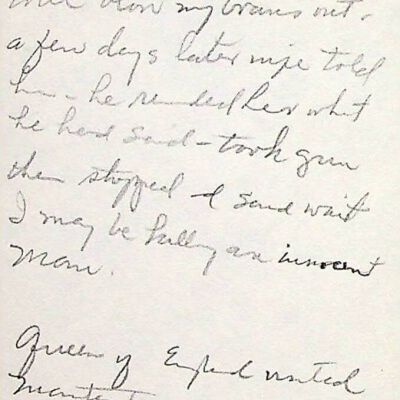 blow my brains out.
a few days later wife told
him - he reminded her what
he had said - took gun
then stopped & said wait
I may be killing an innocent
man.
Queen of England visited